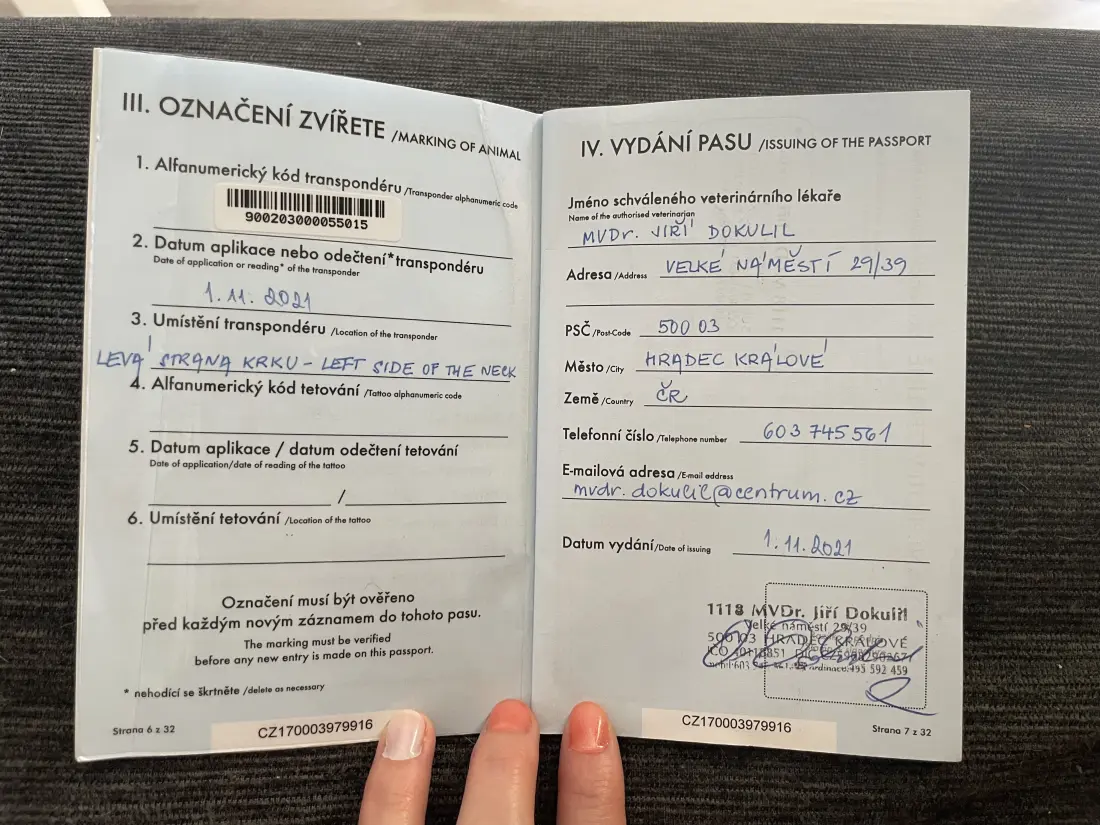 III. OZNAČENÍ ZVÍŘETE /MARKING OF ANIMAL
1. Alfanumerický kód transpondéru /Transponder alphanumeric code
900203000055015
2. Datum aplikace nebo odečtení*transpondéru
Date of application or reading* of the transponder
1.11. 2021
3. Umístění transpondéru /Location of the transponder
LEVÁ STRANA KRKU - LEFT SIDE OF THE NECK
4. Alfanumerický kód tetování /Tattoo alphanumeric code
5. Datum aplikace / datum odečtení tetování
Date of application/date of reading of the tattoo
/
6. Umístění tetování /Location of the tattoo
Označení musí být ověřeno
před každým novým záznamem do tohoto pasu.
The marking must be verified
before any new entry is made on this passport.
* nehodící se škrtněte /delete as necessary
Strana 6 z 32
CZ170003979916
IV. VYDÁNÍ PASU /ISSUING OF THE PASSPORT
Jméno schváleného veterinárního lékaře
Name of the authorised veterinarian
MVDr. JIŘÍ DOKULIL
Adresa /Address VELKÉ NÁMĚSTÍ 29/39
PSČ /Post-Code 500 03
Město /City HRADEC KRÁLOVÉ
Země /Country ČR
Telefonní číslo /Telephone number 603 745 561
E-mailová adresa /E-mail address
mvdr. dokulil@centrum. cz
Datum vydání /Date of issuing 1.11.2021
1118 MVDr. Jiří Dokulil
Velké náměstí 29/39
500 03 HRADEC KRÁLOVÉ
495 592 459
CZ170003979916
Strana 7 z 32